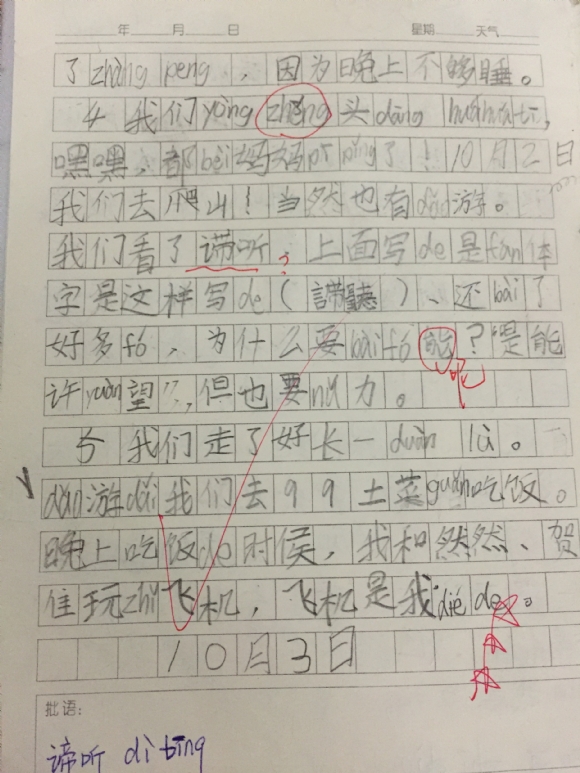 年 月 日 星期 天气
了zhàng peng,因为晚上不够睡。
4 我们yòng zhěng头dāng huáhuátī,
嘿嘿,都bèi妈妈pī píng了!10月2日
我们去爬山!当然也有dǎo游。
我们看了谛听,上面写de是fán体
字是这样写de(諦聽)、还bài了
好多fó,为什么要bài fó能?是能
呢
许yuàn望",但也要nǔ力。
5 我们走了好长一duàn lù。
dǎo游dài我们去99土菜guǎn吃饭。
晚上吃饭de时侯,我和然然、贺
佳玩zhǐ飞机,飞机是我dié de。
10月3日
批语:
谛听 dì tīng